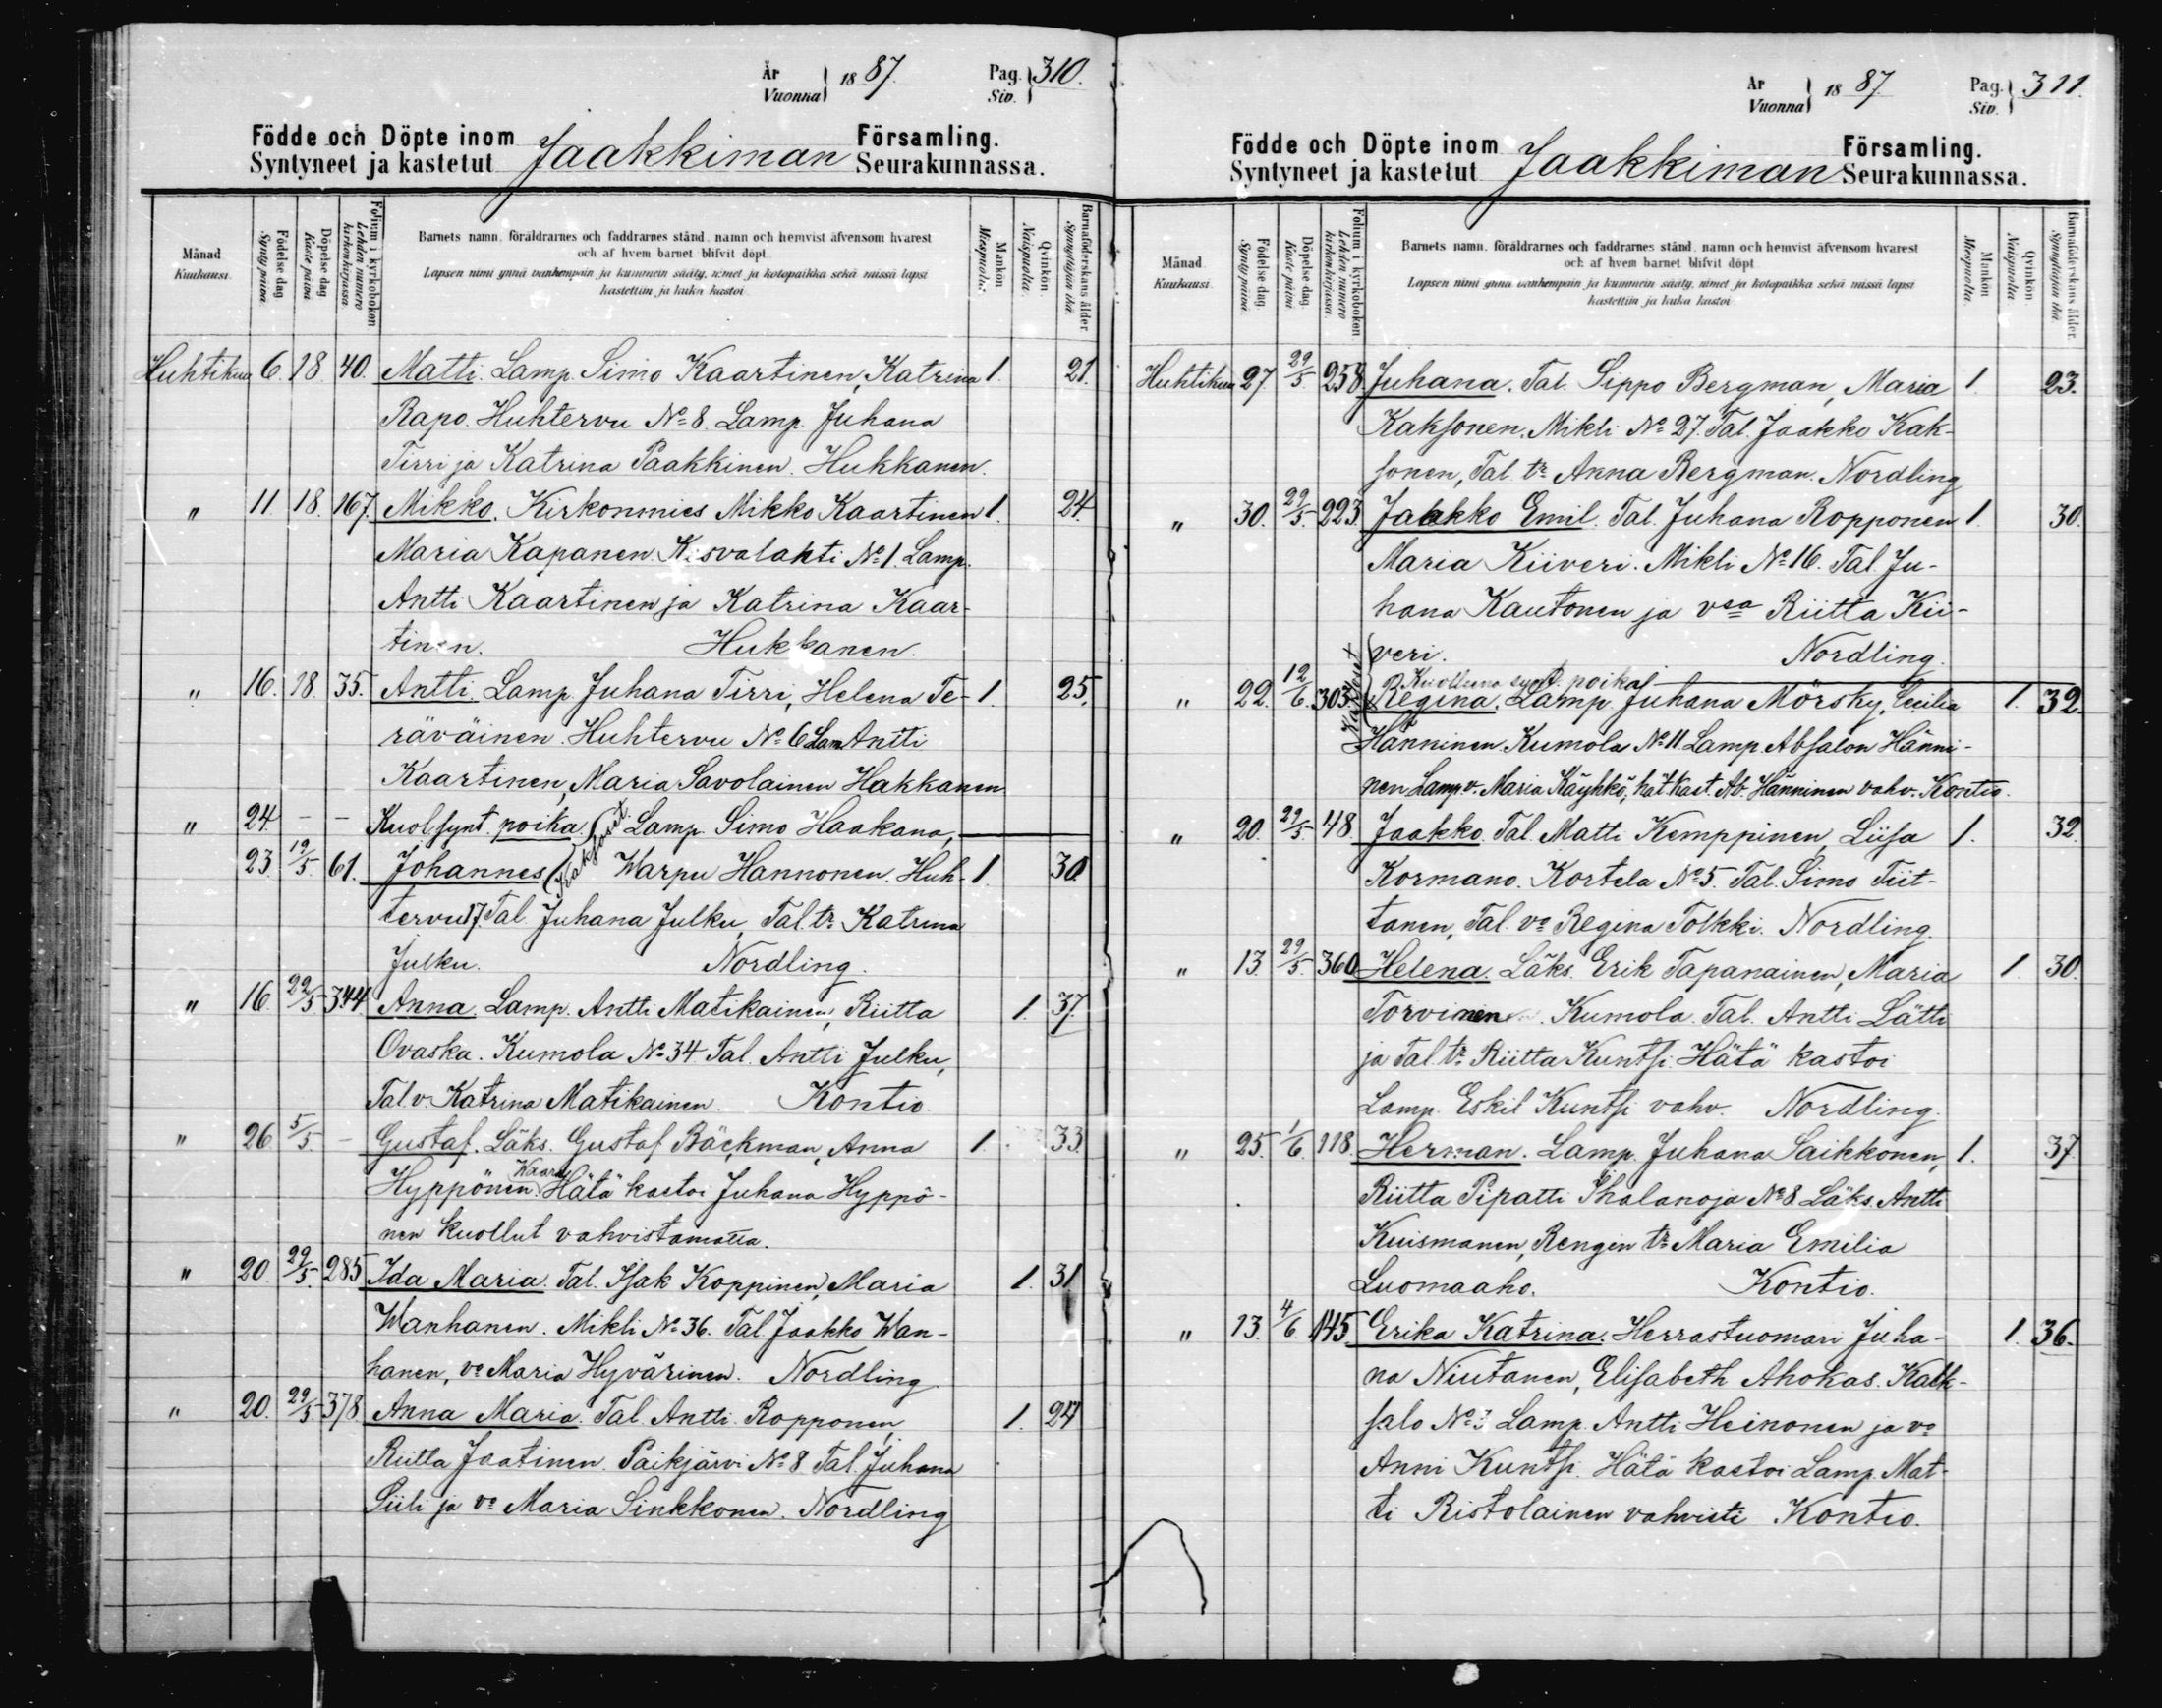 År
Vuonna } 1887. Pag. Siv. } 310.
Födde och Döpte inom Jaakkiman Församling.
Syntyneet ja kastetut Seurakunnassa.
Månad Kuukausi.
Födelse dag Synty päivä.
Döpelse dag Kaste päivä
Folium i kyrkoboken Lehden numero kirkonkirjassa.
Barnets namn, föräldrarnes och faddrarnes stånd, namn och hemvist äfvensom hvarest
och af hvem barnet blifvit döpt.
Lapsen nimi ynnä vanhempain ja kummein sääty, nimet ja kotopaikka sekä missä lapsi
kastettiin ja kuka kastoi.
Mankön Miespuolia.
Qvinkön. Naispuolia.
Barnaföderskans ålder. Synnyttäjän ikä.
Huhtikuu 6. 18. 40. Matti. Lamp. Simo Kaartinen, Katrina 1. 21.
Rapo. Huhtervu No 8. Lamp. Juhana
Tirri ja Katrina Paakkinen. Hukkanen.
" 11. 18. 167. Mikko. Kirkonmies Mikko Kaartinen 1. 24.
Maria Kapanen. Kesvalahti No 1. Lamp.
Antti Kaartinen ja Katrina Kaar-
tinen. Hukkanen.
" 16. 18. 35. Antti. Lamp. Juhana Tirri, Helena Te- 1. 25.
räväinen. Huhtervu No 6 Lam Antti
Kaartinen, Maria Savolainen Hakkanen
" 24. - - Kuol. synt. poika. Kaksoset. Lamp. Simo Haakana,
23. 19/5. 61. Johannes Warpu Hannonen. Huh- 1. 30.
tervu 17. Tal. Juhana Julku, Tal. tr. Katrina
Julku. Nordling.
" 16. 22/5 344 Anna. Lamp. Antti Matikainen, Riitta 1. 37.
Ovaska. Kumola No 34 Tal. Antti Julku,
Tal. v. Katrina Matikainen. Kontio.
" 26 5/5 - Gustaf. Läks. Gustaf Bäckman, Anna 1. 33.
Hyppönen. Hätä kastoi Juhana Hyppö-
nen kuollut vahvistamatta.
" 20. 29/5. 285 Ida Maria. Tal. Isak Koppinen, Maria 1. 31
Wanhanen. Mikli No 36. Tal. Jaakko Wan-
hanen, vo Maria Hyvärinen. Nordling
" 20. 29/5 378 Anna Maria. Tal. Antti Ropponen, 1. 24
Riitta Jaatinen. Paikjärvi No 8 Tal. Juhana
Siili ja vo Maria Sinkkonen. Nordling
År
Vuonna } 1887. Pag. Siv. } 311.
Födde och Döpte inom Jaakkiman Församling.
Syntyneet ja kastetut Seurakunnassa.
Månad Kuukausi.
Födelse dag Synty päivä.
Döpelse dag. Kaste päivä
Folium i kyrkoboken Lehden numero kirkonkirjassa.
Barnets namn, föräldrarnes och faddrarnes stånd, namn och hemvist äfvensom hvarest
och af hvem barnet blifvit döpt.
Lapsen nimi ynnä vanhempain ja kummein sääty, nimet ja kotopaikka sekä missä lapsi
kastettiin ja kuka kastoi.
Mankön Miespuolia.
Qvinkön. Naispuolia
Barnaföderskans ålder. Synnyttäjän ikä.
Huhtikuu 27. 29/5. 258. Juhana. Tal. Sippo Bergman, Maria 1. 23.
Kaksonen. Mikli No 27. Tal. Jaakko Kak-
sonen, Tal. tr. Anna Bergman. Nordling
" 30. 29/5. 223. Jaakko Emil. Tal. Juhana Ropponen 1. 30.
Maria Kiiveri. Mikli No 16. Tal. Ju-
hana Kautonen ja vsa Riitta Kii-
veri. Nordling.
Kuolleena synt. poika
" 22. 12/6. 303. Regina. Lamp. Juhana Mörsky, Cecilia 1. 32.
Hänninen. Kumola No 11 Lamp. Absalon Hänni-
nen Lamp. v. Maria Käyhkö, hät. kast. Ab. Hänninen vahv. Kontio.
" 20. 29/5. 48. Jaakko. Tal. Matti Kemppinen, Liisa 1. 32
Kormano. Kortela No 5. Tal. Simo Tiit-
tanen, Tal. vo Regina Tolkki. Nordling.
" 13. 29/5. 360 Helena. Läks. Erik Tapanainen, Maria 1. 30.
Torvinen. Kumola. Tal. Antti Lätti
ja Tal. tr. Riitta Kuntsi. Hätä kastoi
Lamp. Eskil Kuntsi vahv. Nordling.
" 25. 1/6. 118. Herman. Lamp. Juhana Saikkonen, 1. 37.
Riitta Pipatti Ihalanoja No 8 Läks. Antti
Kuismanen, Rengin tr. Maria Emilia
Luomaaho. Kontio.
" 13. 4/6. 145 Erika Katrina. Herrastuomari Juha- 1. 36.
na Niutanen, Elisabeth Ahokas.
salo No 3 Lamp. Antti Heinonen ja vo
Anni Kuntsi. Hätä kastoi Lamp. Mat-
ti Ristolainen vahvisti Kontio.